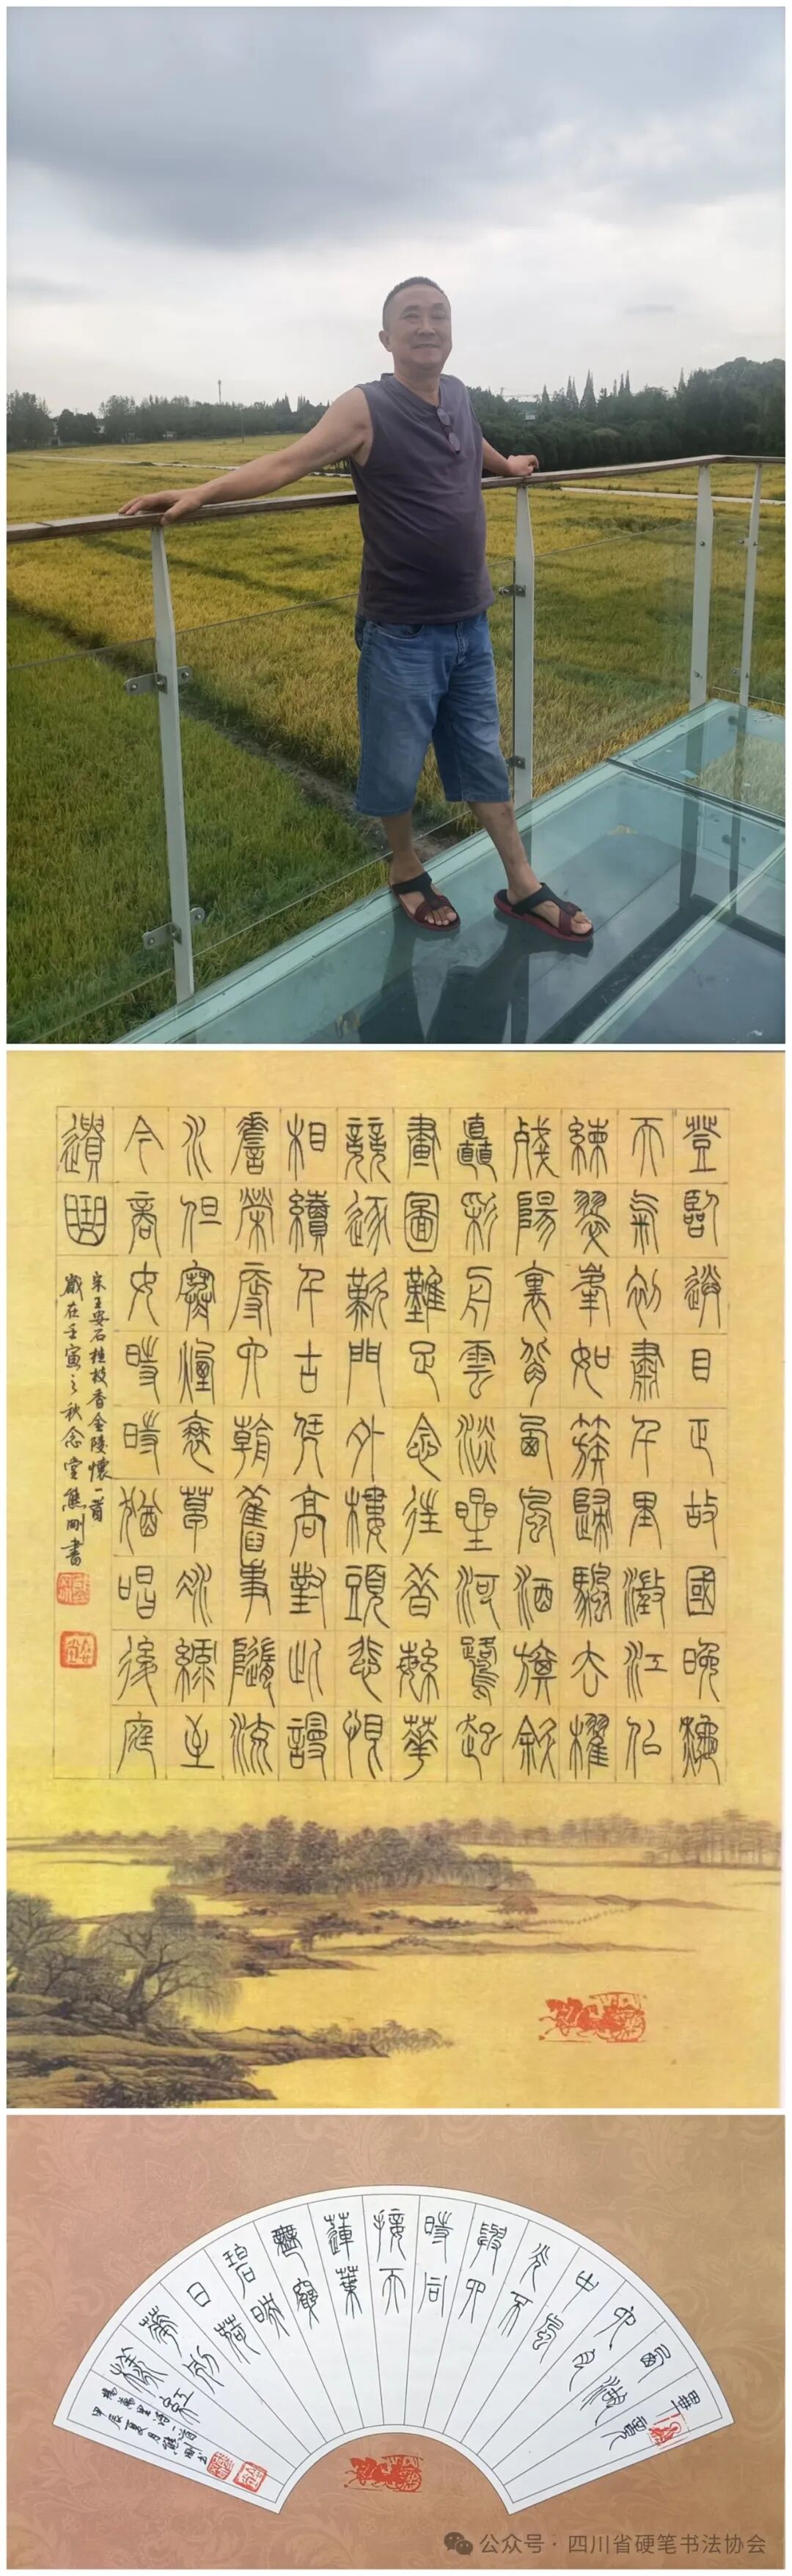 登臨送目正故國晚秋
天氣初肅千里澂江似
練翠峯如簇歸颿去櫂
殘陽裏背西風酒旗斜
矗彩舟雲淡星河鷺起
畫圖難足念往昔繁華
競逐歎門外樓頭悲恨
相續千古凭高對此謾
嗟榮辱六朝舊事隨流
水但寒煙衰草凝綠至
今商女時時猶唱後庭
遺曲
宋王安石桂枝香金陵懷一首
歲在壬寅之秋念堂熊剛書
畢竟
西湖
六月
中風
光不
與四
時同
接天
蓮葉
無窮
碧映
日荷
花別
樣紅
楊萬里詩一首
甲辰夏月熊剛書
公众号·四川省硬笔书法协会